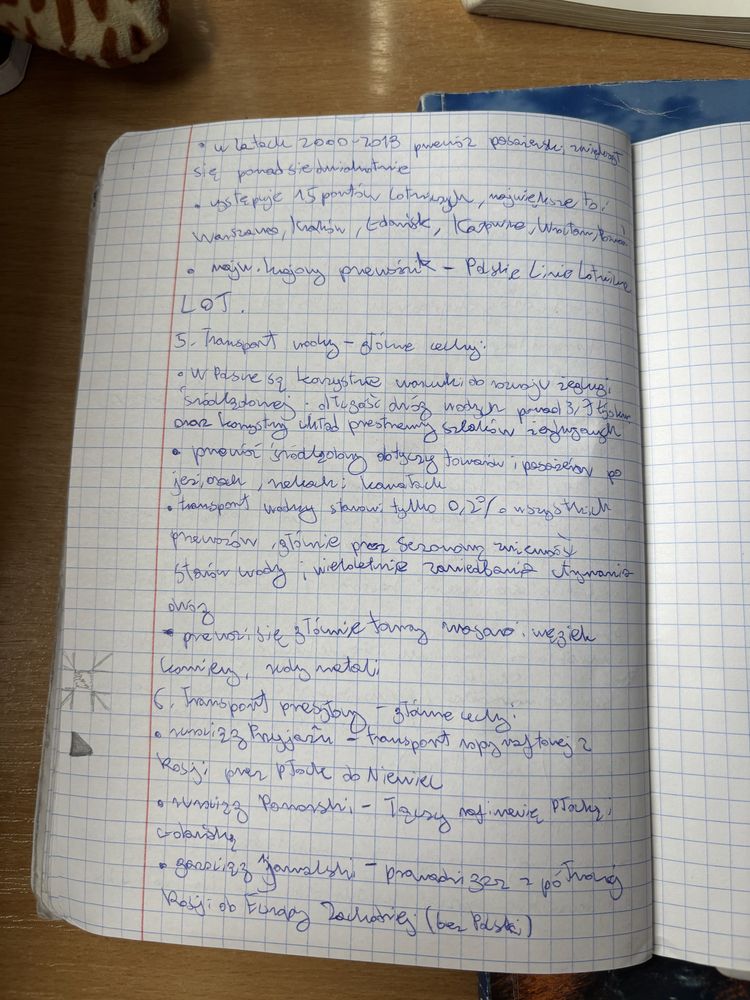 • w latach 2000-2019 przewóz pasażerski zwiększył
się ponad siedmiokrotnie
• występuje 15 portów lotniczych, największe to:
Warszawa, Kraków, Gdańsk, Katowice, Wrocław,
• najw. krajowy przewoźnik – Polskie Linie Lotnicze
LOT.
5. Transport wodny – główne cechy:
• W Polsce są korzystne warunki do rozwoju żeglugi
śródlądowej. długość dróg wodnych ponad 3,7 tys km
oraz korzystny układ przestrzenny szlaków żeglugowych
• przewóz śródlądowy dotyczy towarów i pasażerów po
jeziorach, rzekach i kanałach
• transport wodny stanowi tylko 0,2% wszystkich
przewozów, głównie przez sezonową zmienność
stanów wody i wieloletnie zaniedbania utrzymania
dróg
• przewozi się głównie towary masowe: węgiel
kamienny, rudy metali
6. Transport przesyłowy – główne cechy:
• rurociąg Przyjaźń – transport ropy naftowej z
Rosji przez Płock do Niemiec
• rurociąg Pomorski – łączy rafinerię Płocką i
Gdańską
• gazociąg Jamalski – prowadzi gaz z północnej
Rosji do Europy Zachodniej (bez Polski)